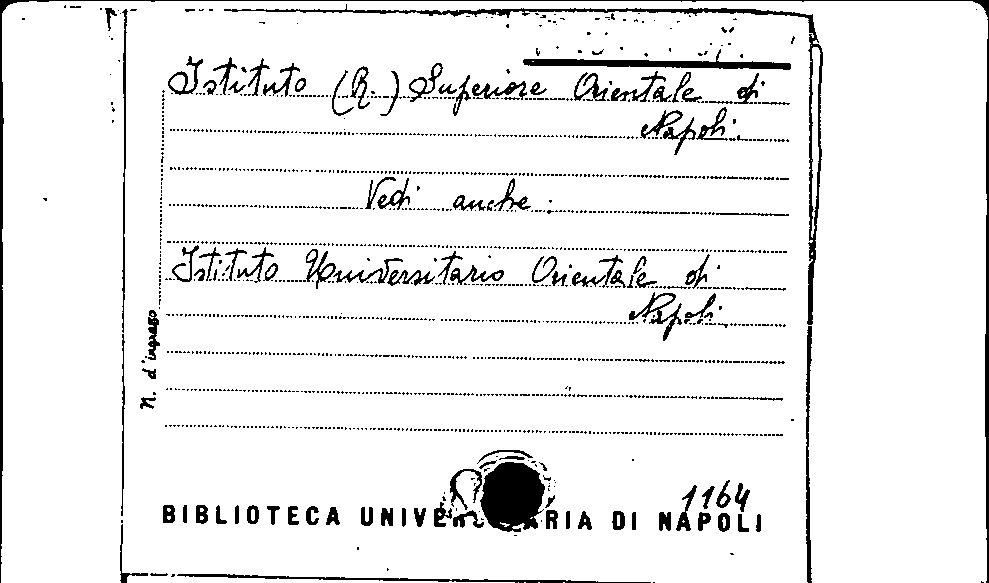 Istituto (R.) Superiore Orientale di
Napoli.
Vedi anche:
Istituto Universitario Orientale di
Napoli.
N. d'ingresso
1164
BIBLIOTECA DI NAPOLI